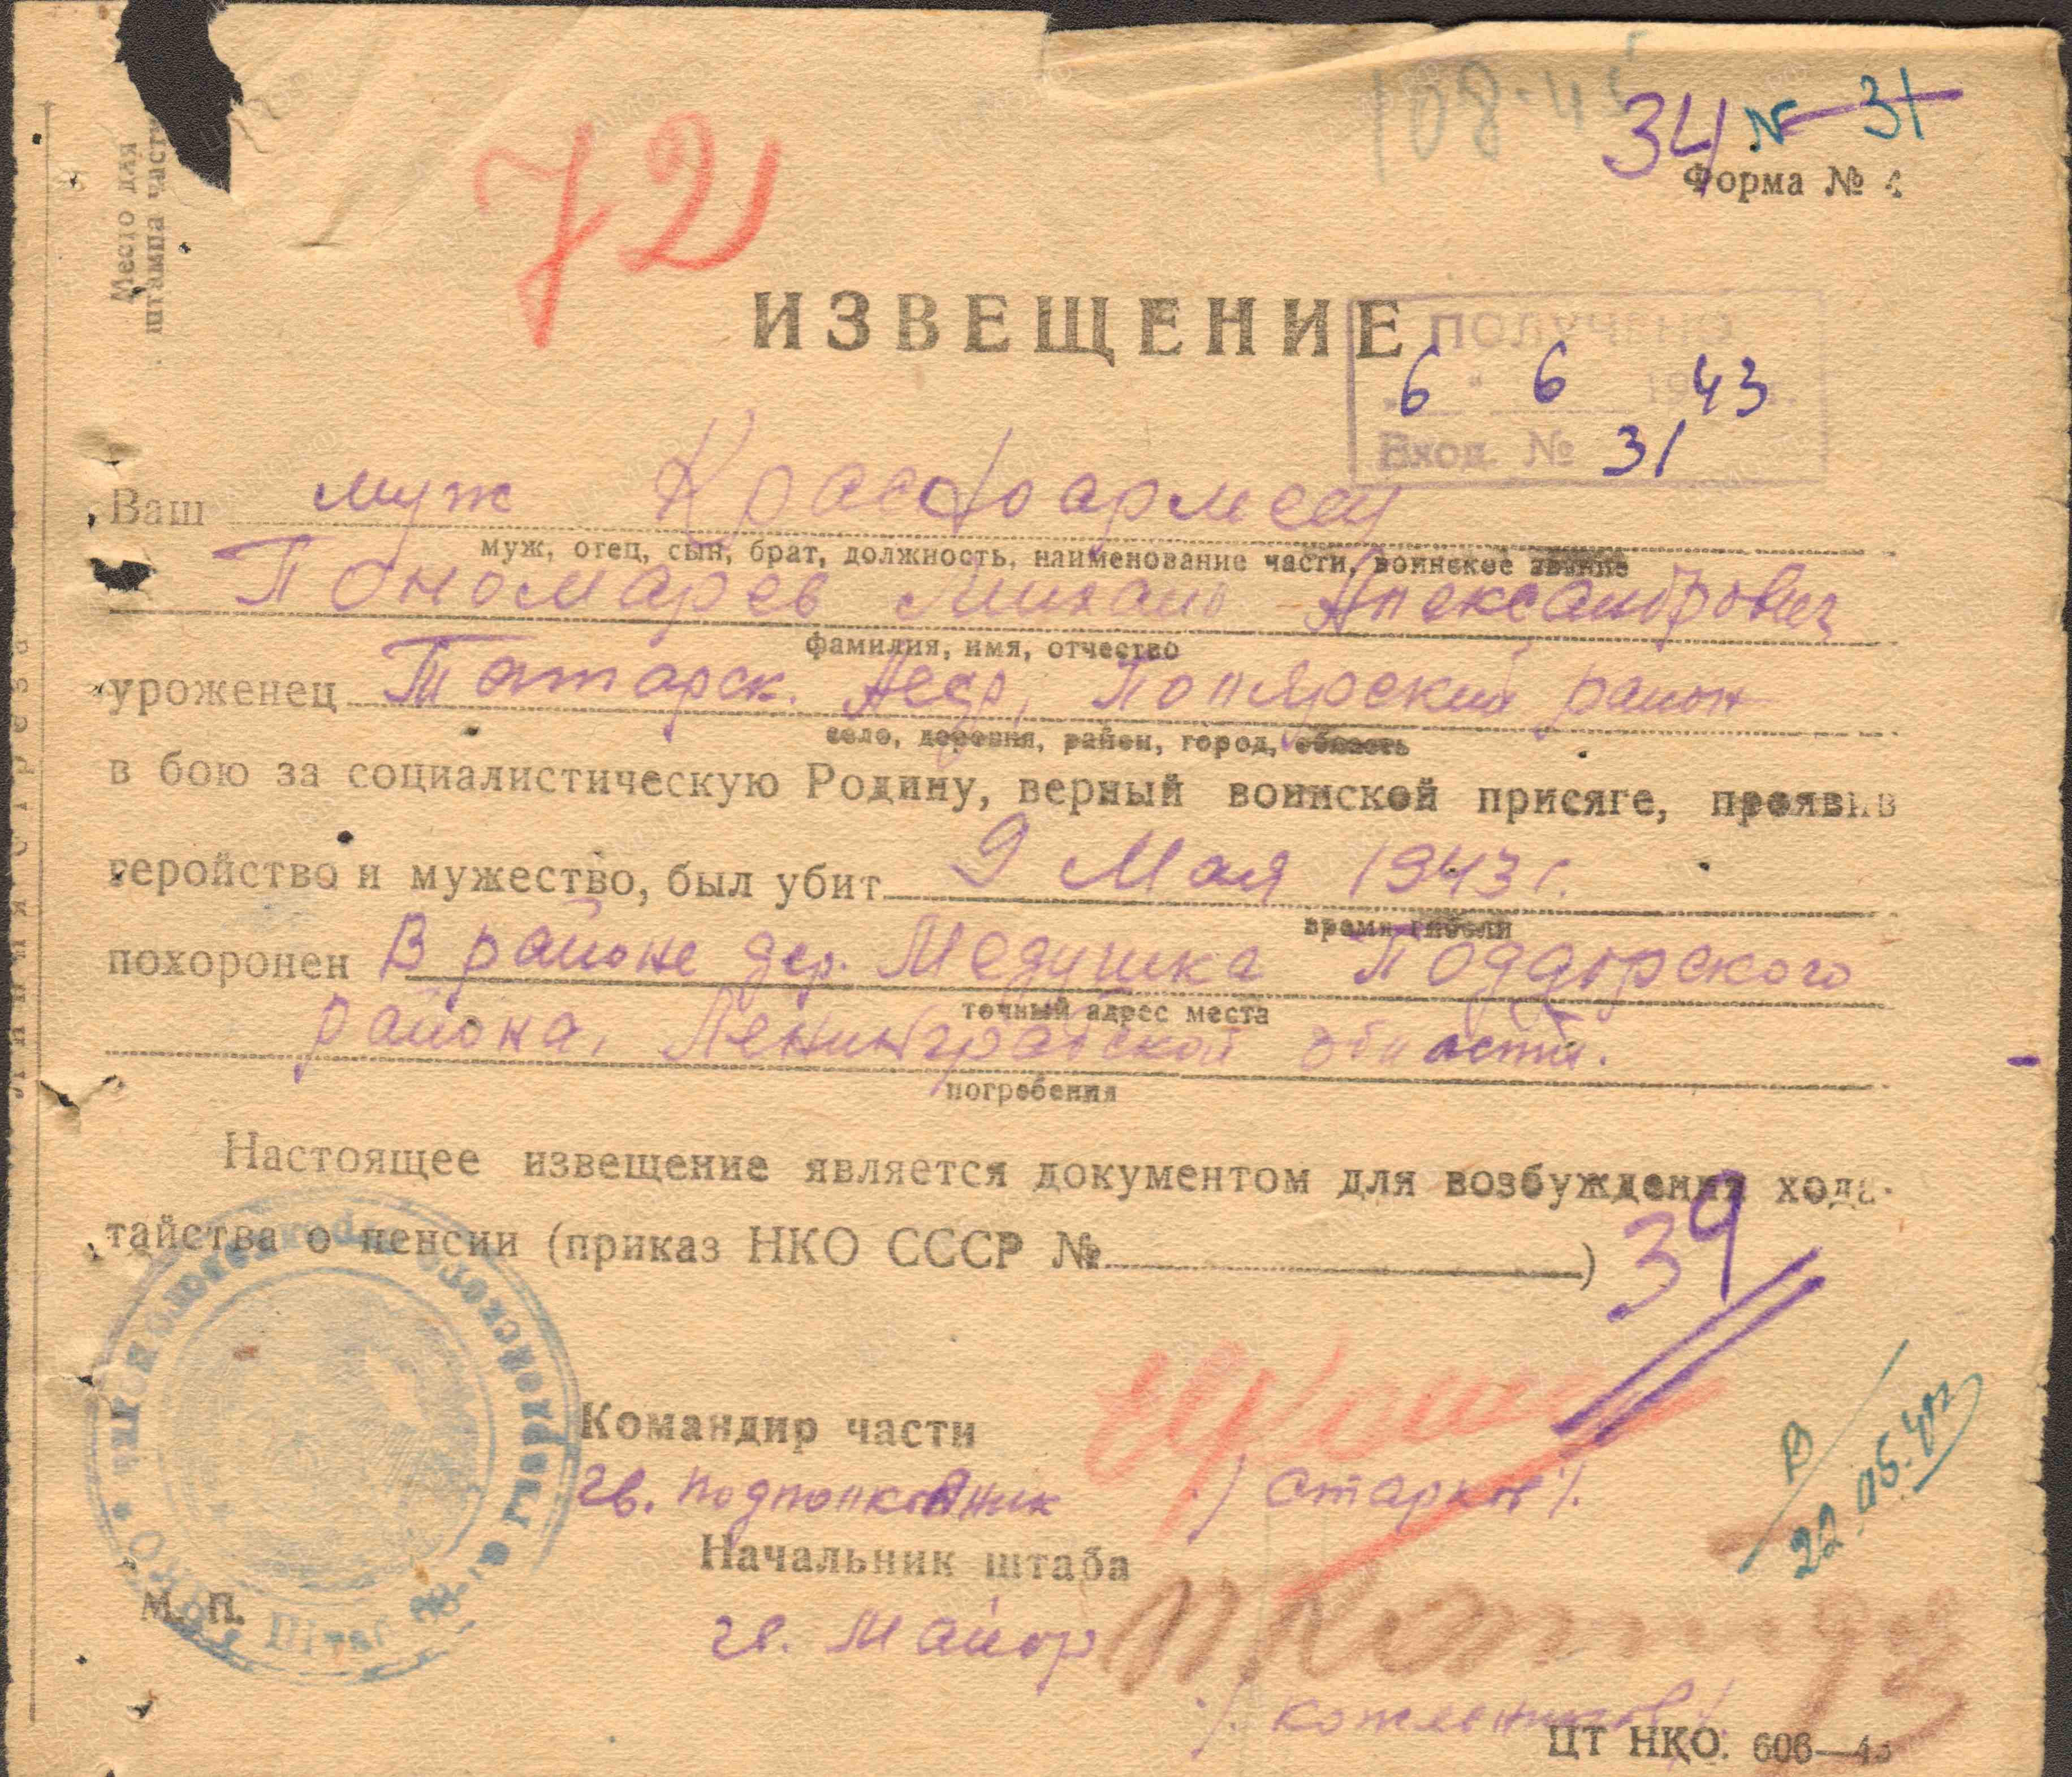 108-45
34 № 31
Форма № 4
Место для
штампа части
72
ИЗВЕЩЕНИЕ
ПОЛУЧЕНО
6 " 6 1943 г.
Вход. № 31
Ваш муж Красноармеец
муж, отец, сын, брат, должность, наименование части, воинское звание
Пономарев Михаил Александрович
фамилия, имя, отчество
уроженец Татарск. АССР, район
село, деревня, район, город, область
в бою за социалистическую Родину, верный воинской присяге, проявив
геройство и мужество, был убит 9 Мая 1943 г.
время гибели
похоронен В районе дер. Медушка Поддорского
точный адрес места
района, Ленинградской области.
погребения
Настоящее извещение является документом для возбуждения хода-
тайства о пенсии (приказ НКО СССР № )
39
Командир части
гв. подполковник / Старков /.
Начальник штаба
гв. Майор
/ Кожевников /
М. П.
НКО Штаб гвардейского
ЦТ НКО. 606—43